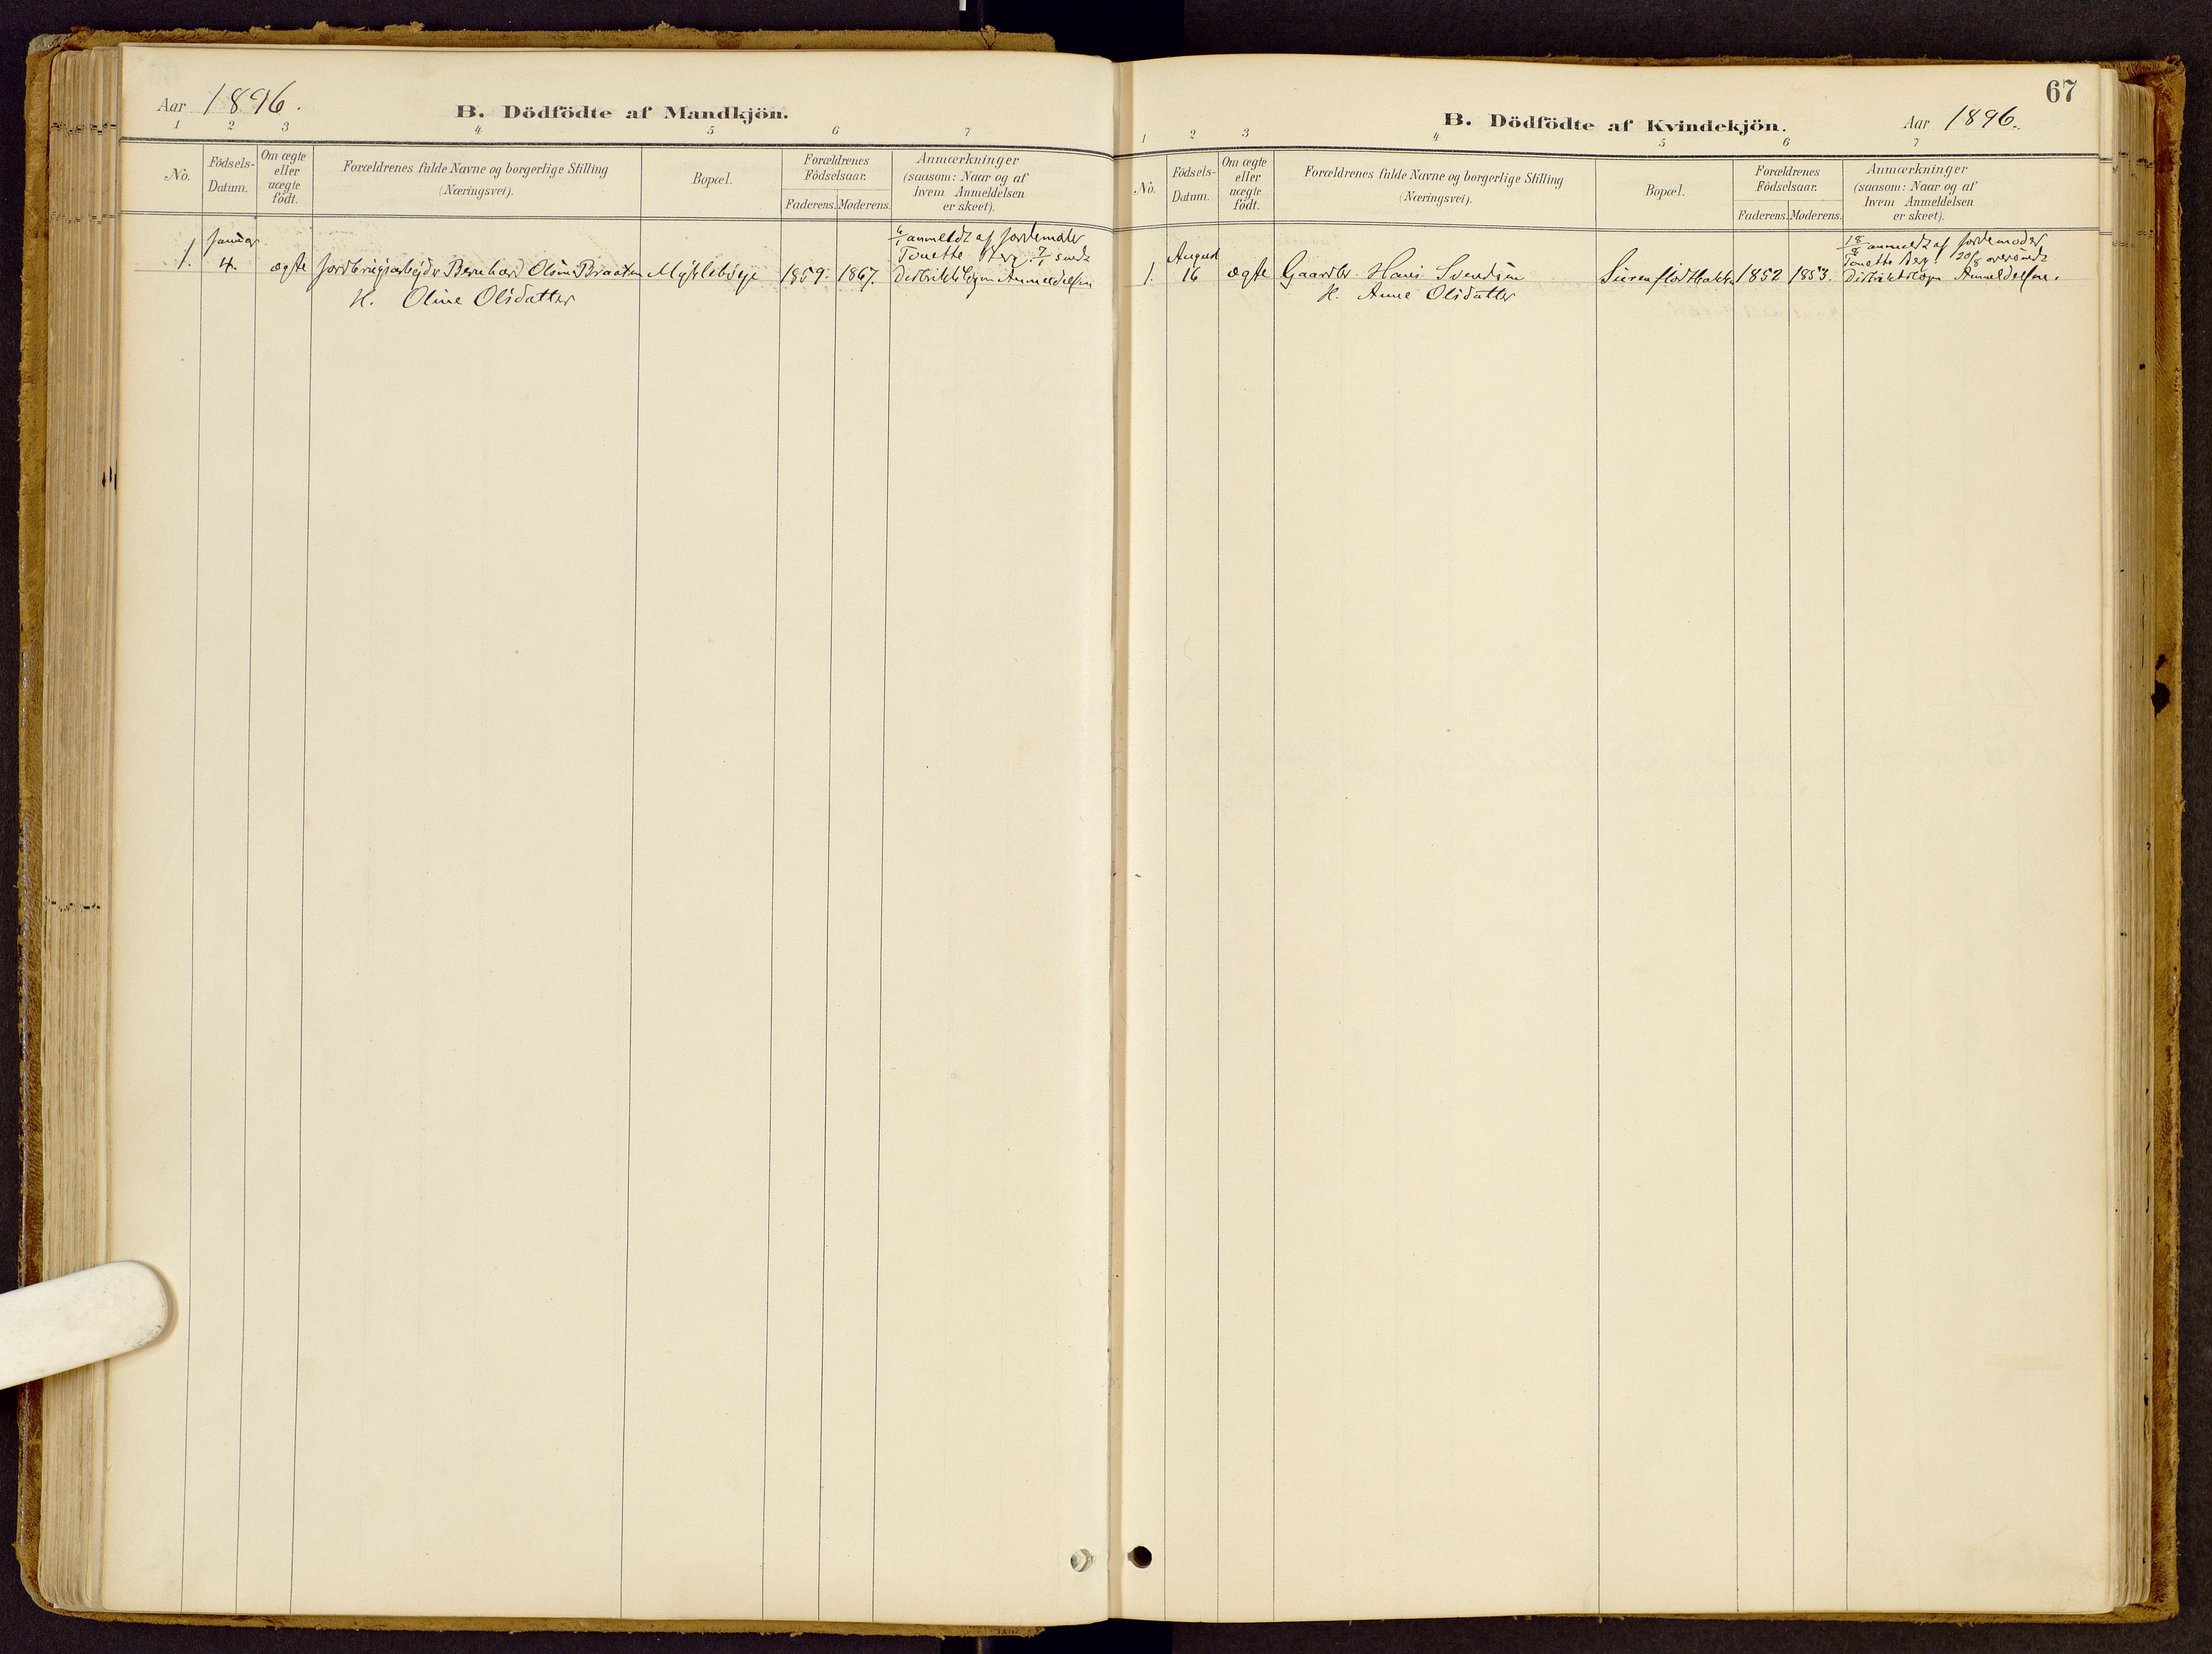 Aar 1896.
B. Dödfödte af Mandkjön.
1 2 3 4 5 6 7
No.
Födsels-
Datum.
Om ægte
eller
uægte
født.
Forældrenes fulde Navne og borgerlige Stilling
(Næringsvei).
Bopæl.
Forældrenes
Födselsaar.
Faderens. Moderens.
Anmærkninger
(saasom: Naar og af
hvem Anmeldelsen
er skeet).
Januar
1. 4. ægte Jordbrugsarbejder Bernhard Olsen Braaten
H. Oline Olsdatter
1859. 1867.
anmeldt af Jordemoder
Tonette Berg. 7/1 sendt
Distriktslægen Anmeldelsen
67
B. Dödfödte af Kvindekjön.
Aar 1896.
1 2 3 4 5 6 7
No.
Födsels-
Datum.
Om ægte
eller
uægte
født.
Forældrenes fulde Navne og borgerlige Stilling
(Næringsvei).
Bopæl.
Forældrenes
Födselsaar.
Faderens. Moderens.
Anmærkninger
(saasom: Naar og af
hvem Anmeldelsen
er skeet).
August
1. 16 ægte Gaardbr Hans Svendsen
H. Anne Olsdatter
1852 1853.
18/8 anmeldt af Jordemoder
Tonette Berg 20/8 oversendt
Distriktslægen Anmeldelsen.